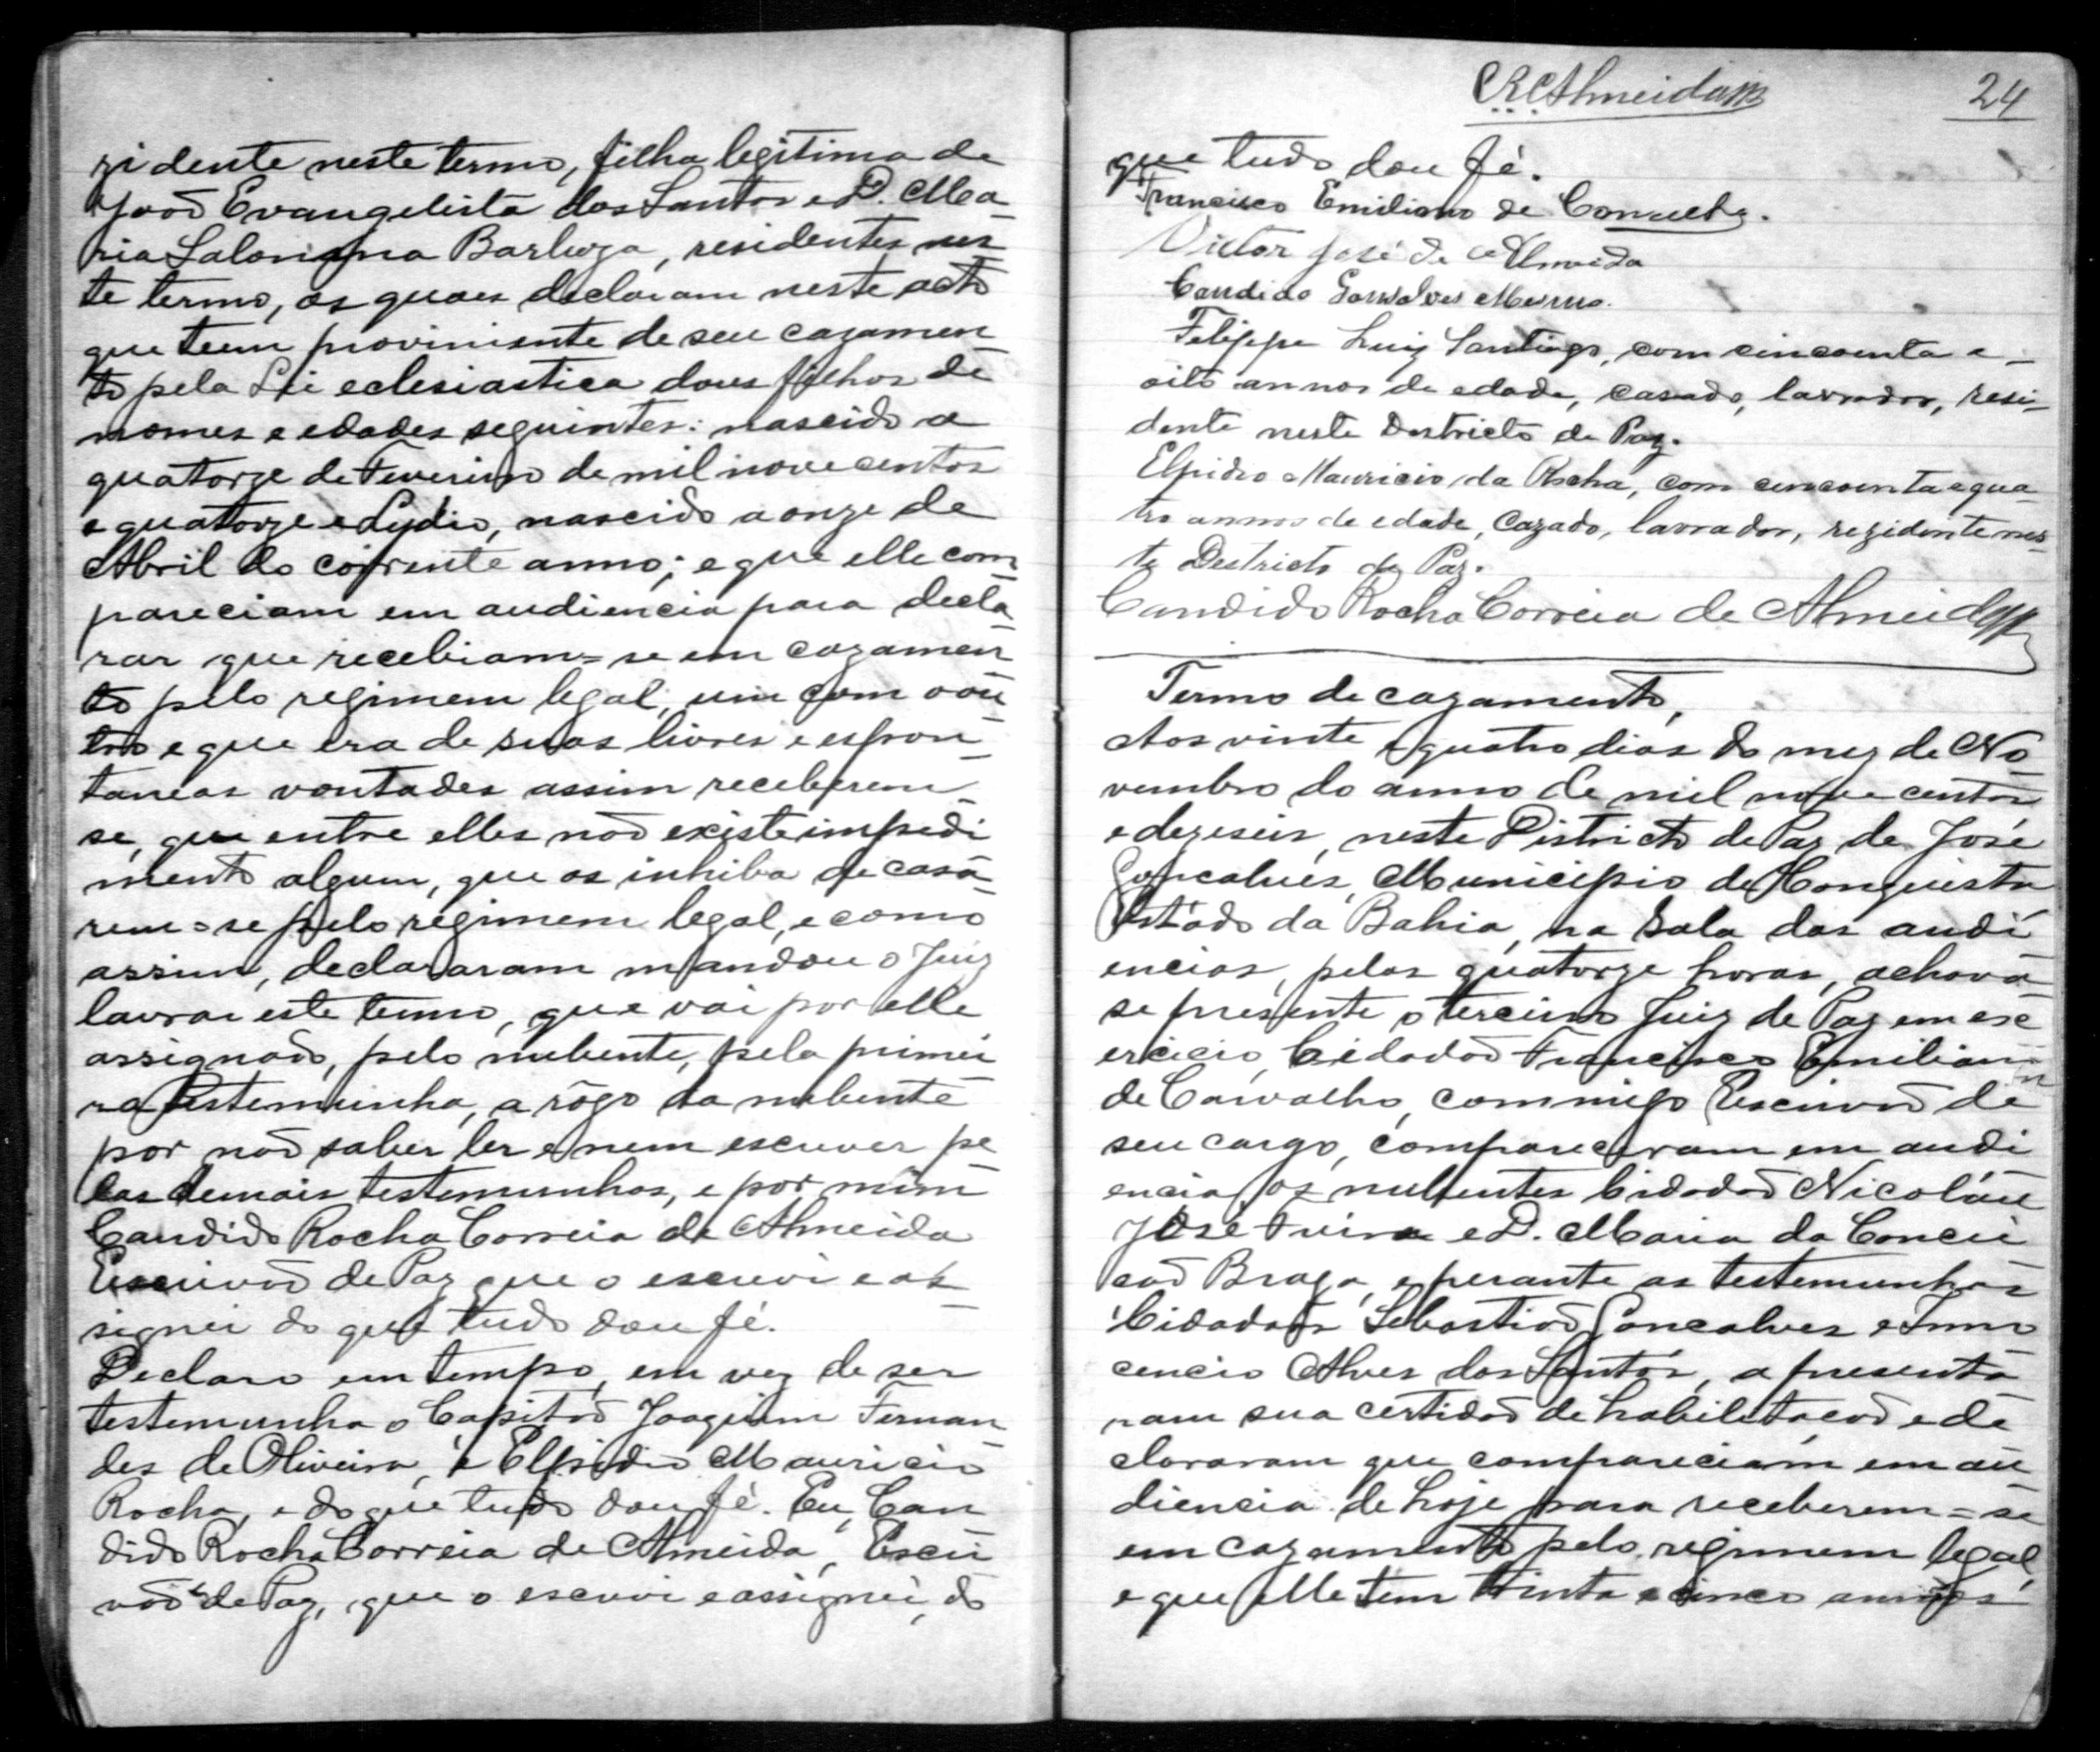 zidente neste termo, filha legitima de
Joaõ Evangelista dos Santos e D. Ma-
ria Barboza, residentes nes-
te termo, os quaes declaram neste acto
que teem proviniente de seu cazamen-
to pela Lei eclesiastica dous filhos de
nomes e edades seguintes: nascido a
quatorze de Fevereiro de mil nove centos
e quatorze e Lydio, nascido a onze de
Abril do corrente anno; e que elle com-
pareciam em audiencia para decla-
rar que recebiam=se em cazamen-
to pelo regimem legal, um com o ou-
tro e que era de suas livres e espon-
taneas vontades assim receberem
se, que entre elles naõ existe impedi-
mento algum, que os inhiba de casa-
rem=se pelo regimem legal, e como
assim, declararam mandou o Juiz
lavrar este termo, que vai por elle
assignado, pelo nubente, pela primei-
ra testemunha, a rôgo da nubente
por naõ saber ler e nem escrever pe-
las demais testemunhas, e por mim
Candido Rocha Correia de Almeida
Escrivaõ de Paz que o escrevi e as-
signei do que tudo dou fé.
Declaro em tempo, em vez de ser
testemunha o Capitaõ Joaquim Fernan-
des de Oliveira, é Elpidio Mauricio
Rocha, e do que tudo dou fé. Eu, Can-
dido Rocha Correia de Almeida, Escri-
vaõ de Paz, que o escrevi e assignei, do
CRCAlmeida 24
que tudo dou fé.
Francisco Emiliano de Carvalho.
Victor José de Almeida
Candido Gonsalves
Felippe Luiz Santiago, com cincoenta e
oito annos de edade, casado, lavrador, resi-
dente neste Destricto de Paz.
Elpidio Mauricio da Rocha, com cencoenta e qua
tro annos de edade, Cazado, lavrador, rezidente nes-
te Destricto de Paz.
Candido Rocha Correia de Almeida
Termo de cazamento,
Aos vinte e quatro dias do mez de No-
vembro do anno de mil nove centos
e dezeseis, neste Districto de Paz de José
Gonçalves, Municipio de Conquista
Estado da Bahia, na Sala das audi-
encias, pelas quatorze horas, achava-
se presente o terceiro Juiz de Paz em ex-
ercicio, Cidadaõ Francisco Emiliano
de Carvalho, commigo Escrivaõ de
seu cargo, compareceram em audi-
encia os nubentes Cidadaõ Nicoláu
José e D. Maria da Concei-
caõ Braga, e perante as testemunhas
Cidadaõs Sebastiaõ Goncalves e Inno-
cencio Alves dos Santos, a presenta-
ram sua certidaõ de habilitacaõ e de-
clararam que compareciam em au-
diencia de hoje para receberem=se
em cazamento pelo regimem legal,
e que elle tem trinta e cinco annos